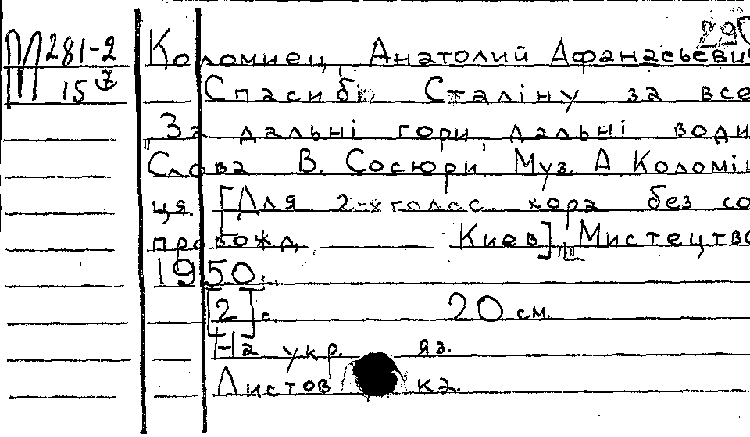 М 281-2
15
Коломиец, Анатолий Афанасьевич
Спасибі Сталіну за все
За дальні гори, дальні води
Слова В. Сосюри. Муз. А. Коломій
ця. [Для 2-х голос. хора без со
провожд. Киев], Мистецтво
1950.
[2] с. 20 см.
На укр. яз.
Листовка.